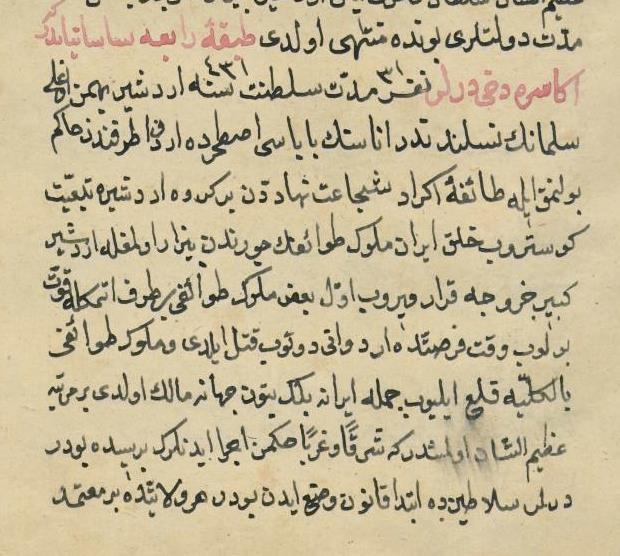 مدت دولتلرى بونده منتهى اولدى طبقۀ رابعه ساسانياندر
اكاسره دخى ديرلر ٣١ نفر مدت سلطنت ٤٣١ سنه اردشير بهمن اوغلى
سلمانك نسلند ندر اناسنك باباسى اصطخرده اردوان طرفندن حاكم
بولنمق ايله طائفۀ اكراد شجاعت نهاددن بر كروه اردشيره تبعيت
كوستروب خلق ايران ملوك طوائفك جورندن بيزار اولمغله اردشير
كبير خروجه قرار ويروب اول بعض ملوك طوائفى بر طرف اتمكله قوت
بولوب وقت فرصتده اردوانى دوتوب قتل ايلدى وملوك طوائفى
بالكليه قلع ايليوب جمله ايرانه بلكه بتون جهانه مالك اولدى بر مرتبه
عظيم الشان اولشدر كه شرقا وغربا حكمن اجرا ايدنلرك بريسده بودر
ديرلر سلاطينده ابتدا قانون وضع ايدن بودر هر ولايتده بر معتمد